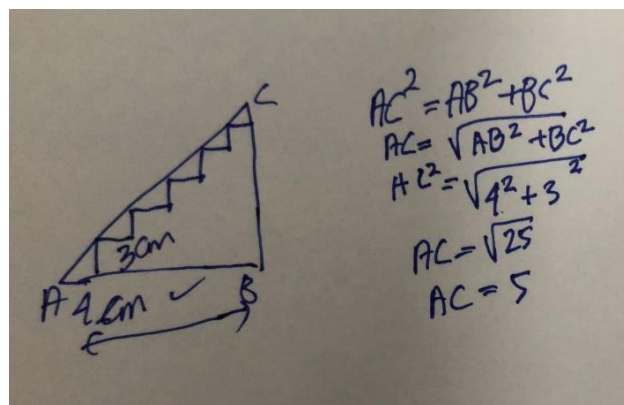 C
3cm
A
B
4cm
AC² = AB² + BC²
AC = √AB² + BC²
AC² = √4² + 3²
AC = √25
AC = 5